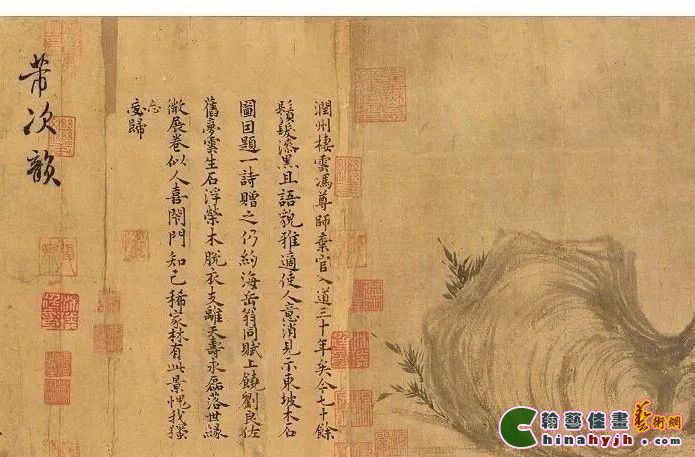 潤州棲雲馮尊師棄官入道三十年矣今七十餘
鬚髮漆黑且語貌雅適使人意消見示東坡木石
圖因題一詩贈之仍約海岳翁同賦上饒劉良佐
舊夢雲生石浮榮木脫衣支離天壽永磊落世緣
微展卷似人喜閉門知己稀家林有此景愧我獨
忘歸
芾次韻
翰藝佳畫藝術網
Chinahyjh.com